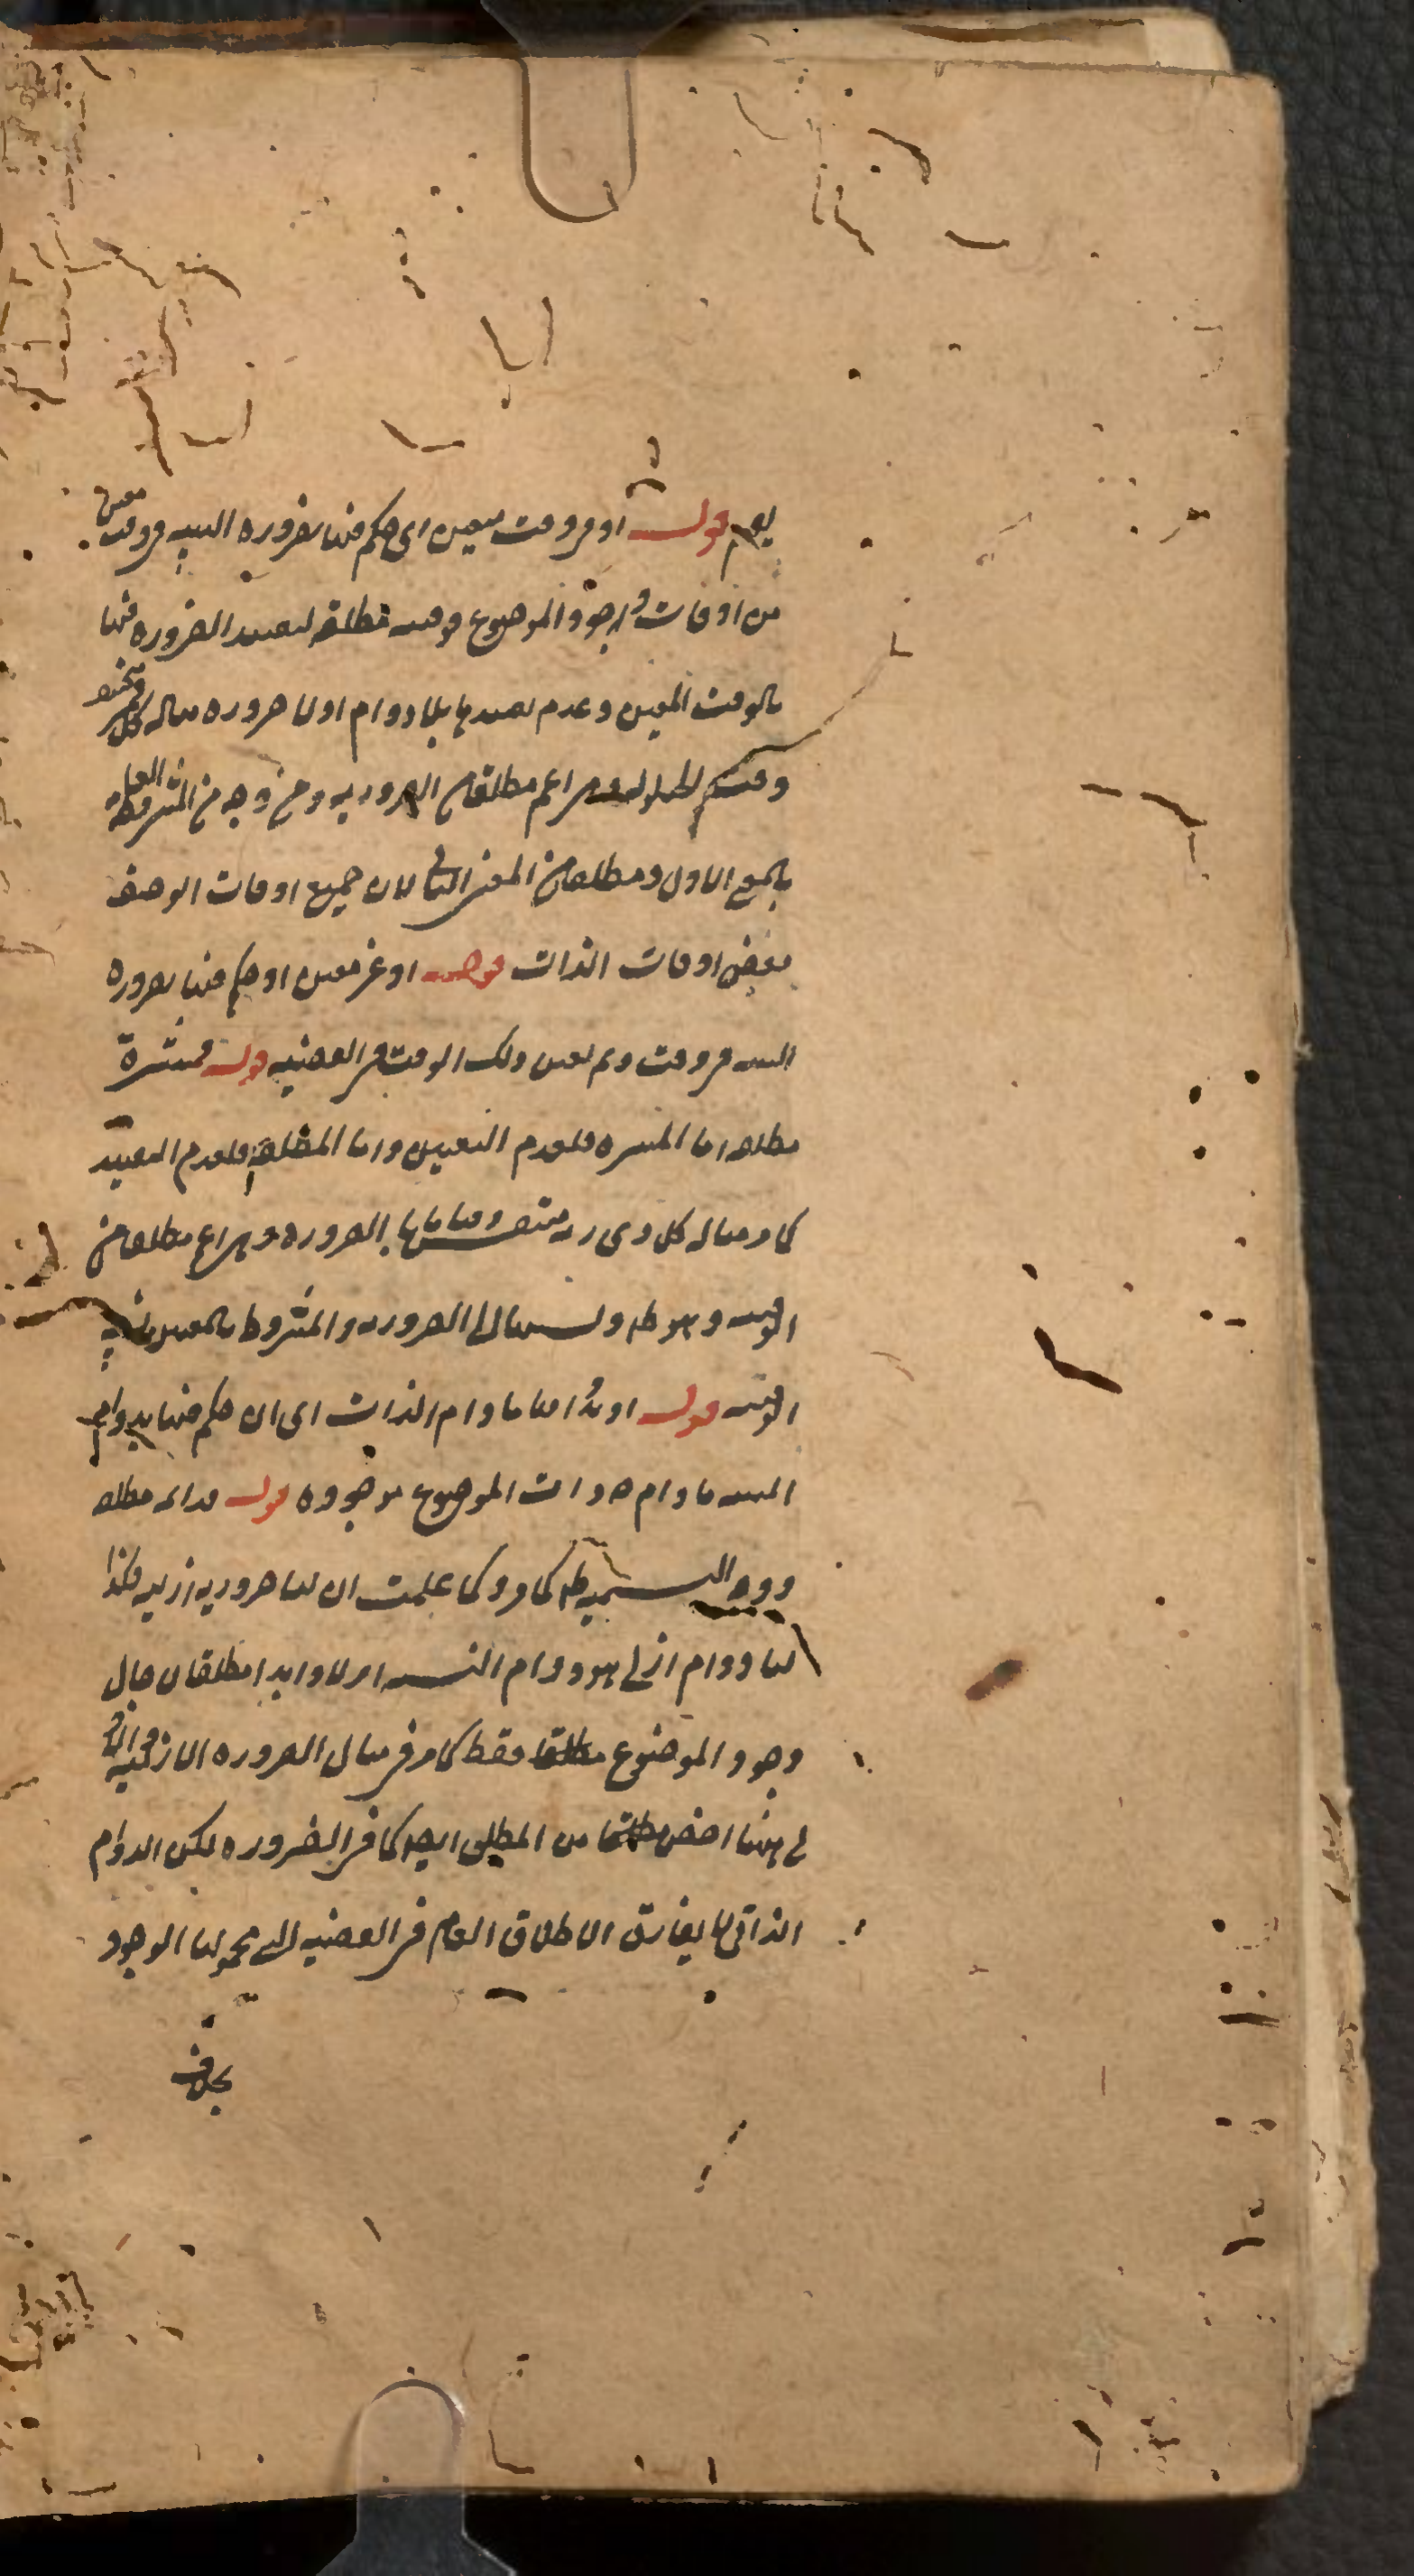 قوله او في وقت معين اى حكم فيها بضرورة النسبة في وقت معين
من اوقات وجود الموضوع فوقتية مطلقة لتقييد الضرورة فيها
بالوقت المعين وعدم تقييدها باللادوام او لا ضرورة مثاله كل قمر منخسف
وقت الحيلولة وهى اعم مطلقا من الضرورية ومن وجه من المشروطة العامة
بالمعنى الاول ومطلقا من المعنى الثانى لان جميع اوقات الوصف
بعض اوقات الذات قوله او غير معين او حكم فيها بضرورة
النسبة في وقت ولم يعين ذلك الوقت في القضية قوله فمنتشرة
مطلقة اما المنتشرة فلعدم التعيين واما المطلقة فلعدم التقييد
كما في مثاله كل ذى رية متنفس وقتا ما بالضرورة وهى اعم مطلقا من
الوقتية ونسبتها الى الضرورية والمشروطة بالمعنيين نسبة
الوقتية قوله او بدوامها ما دام الذات اى ان حكم فيها بدوام
النسبة ما دام ذات الموضوع موجودة قوله فدائمة مطلقة
كما مر وكما علمت ان لنا ضرورية ازلية فكذا
لنا دوام ازلى هو دوام النسبة ازلا وابدا مطلقا لا حال
وجود الموضوع فقط كما مر في مثال الضرورة الازلية
لى هنا اخص مطلقا من المطلق ايضا كما في الضرورة لكن الدوام
الذاتى لا يفارق الاطلاق العام في القضية التى محمولها الوجود
بخلاف